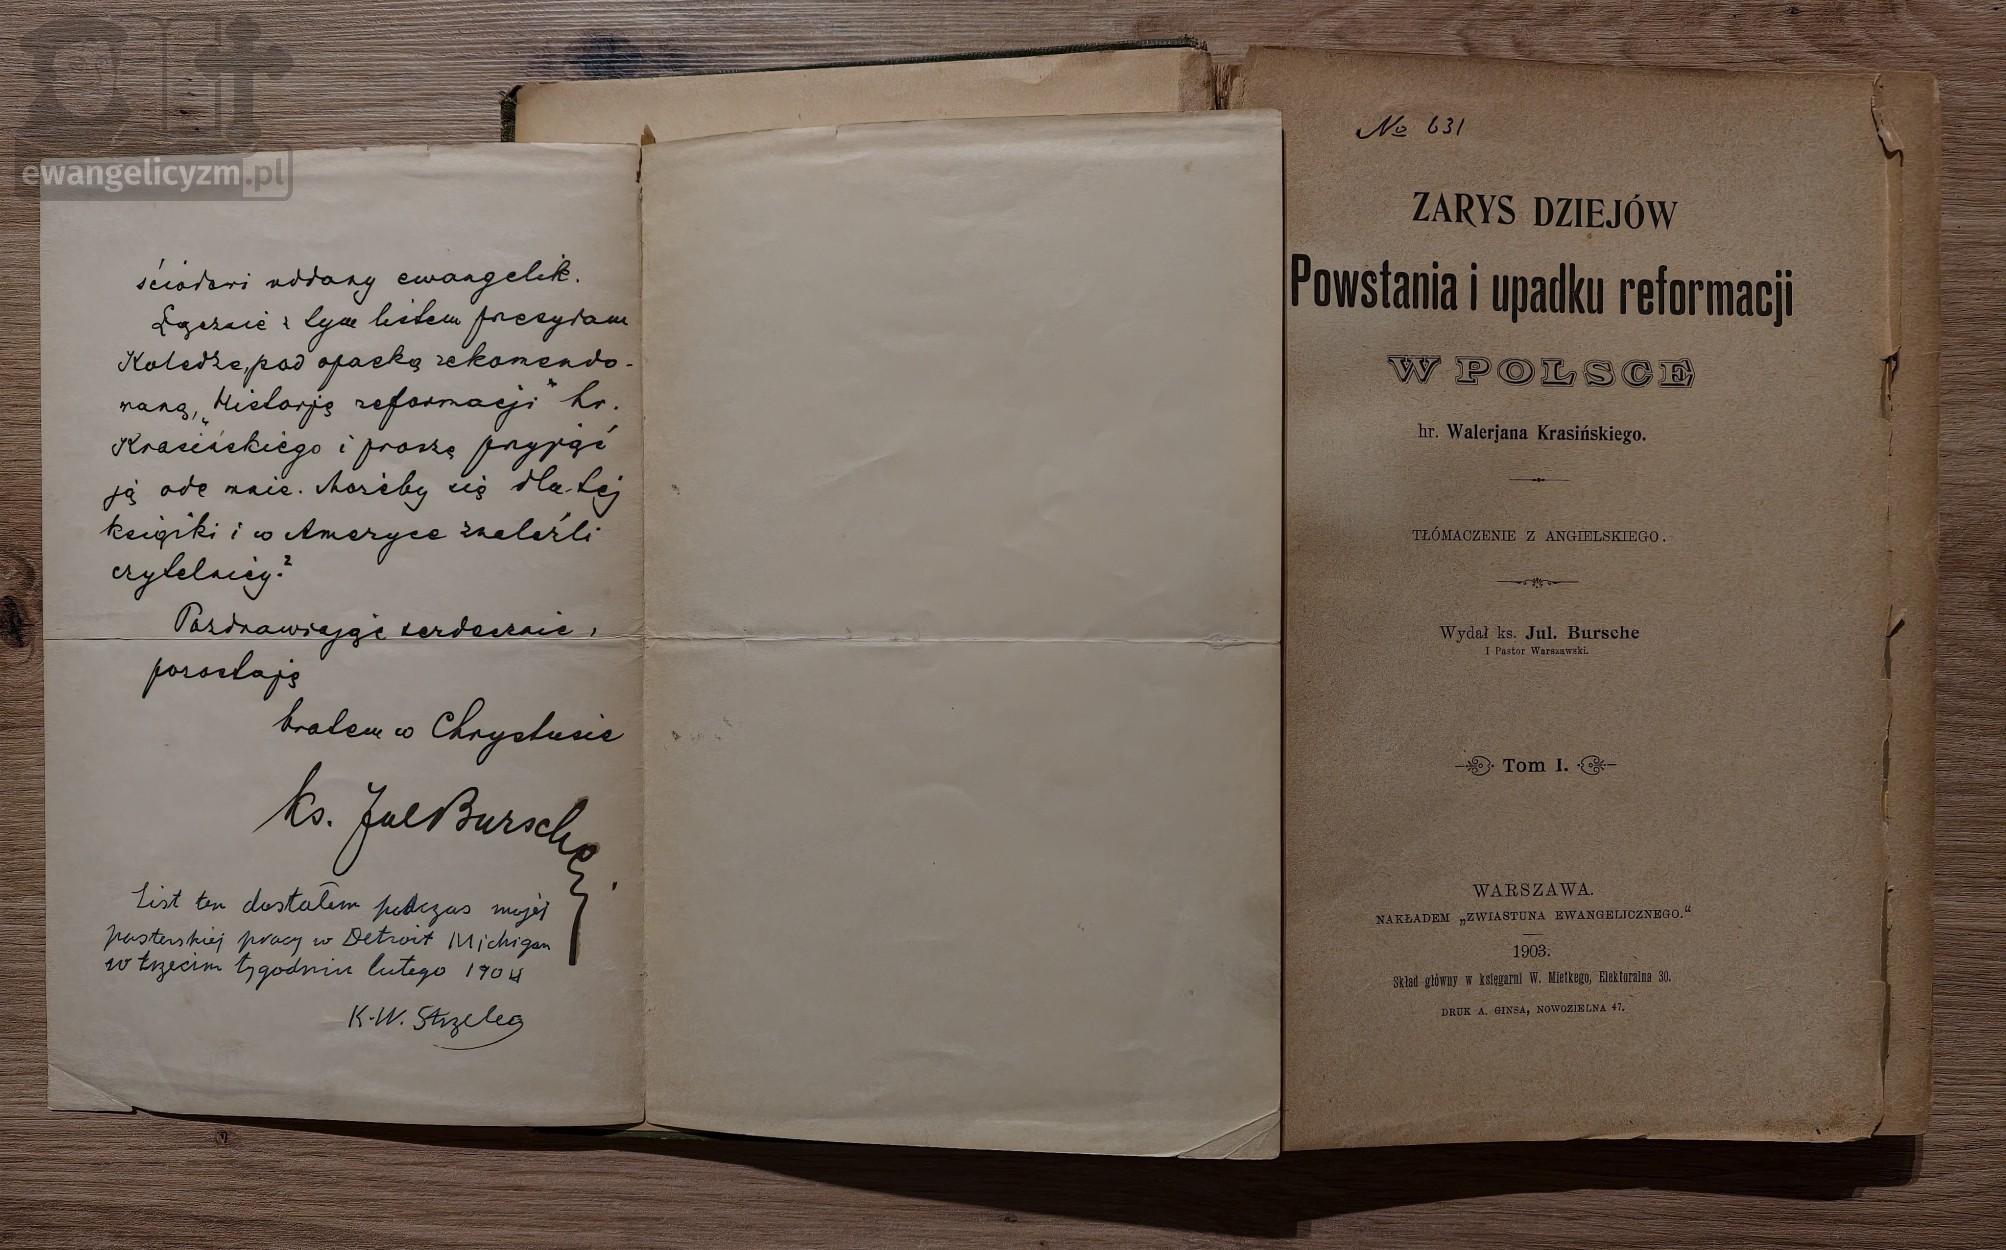 ewangelicyzm.pl
ściołowi oddany ewangelik.
Łącznie z tym listem przesyłam
Koledze, pod opaską rekomendo-
waną, „Historję reformacji" hr.
Krasińskiego i proszę przyjąć
ją ode mnie. Możeby się dla tej
książki i w Ameryce znaleźli
czytelnicy?
Pozdrawiając serdecznie,
pozostaję
bratem w Chrystusie
ks. Jul Bursche
List ten dostałem podczas mojéj
pasterskiej pracy w Detroit Michigan
w trzecim tygodniu lutego 1904
K. W. Strzelec
No 631
ZARYS DZIEJÓW
Powstania i upadku reformacji
W POLSCE
hr. Walerjana Krasińskiego.
TŁÓMACZENIE Z ANGIELSKIEGO.
Wydał ks. Jul. Bursche
I Pastor Warszawski.
Tom I.
WARSZAWA.
NAKŁADEM „ZWIASTUNA EWANGELICZNEGO."
1903.
Skład główny w księgarni W. Mietkego, Elektoralna 30.
DRUK A. GINSA, NOWOZIELNA 47.